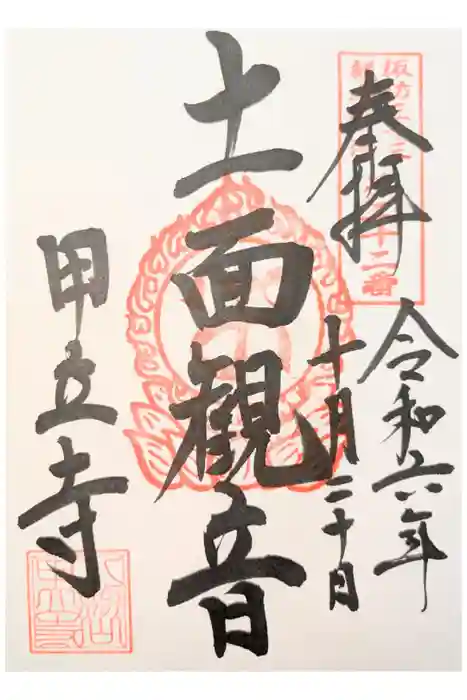 奉拝
十二番
令和六年
十月二十日
十一面観音
甲立寺